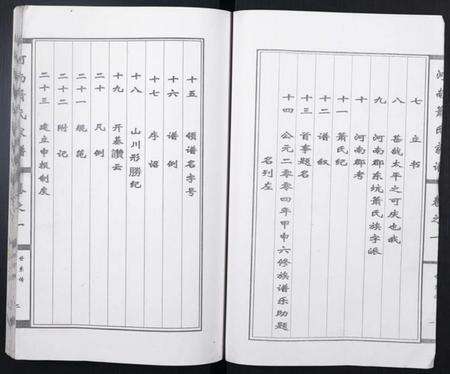 河南萧氏家谱 卷之一
七 立书
八 甚哉太平之可庆也哉
九 河南郡东坑萧氏族字派
十 河南郡考
十一 萧氏纪
十二 谱叙
十三 首事题名
十四 公元二零零四年甲申六修族谱乐助题
名列左
十五 领谱名字号
十六 谱例
十七 序诏
十八 山川形勝纪
十九 开基讚云
二十 凡例
二十一 规范
二十二 附记
二十三 建立申报制度
河南萧氏家谱 卷之一
二